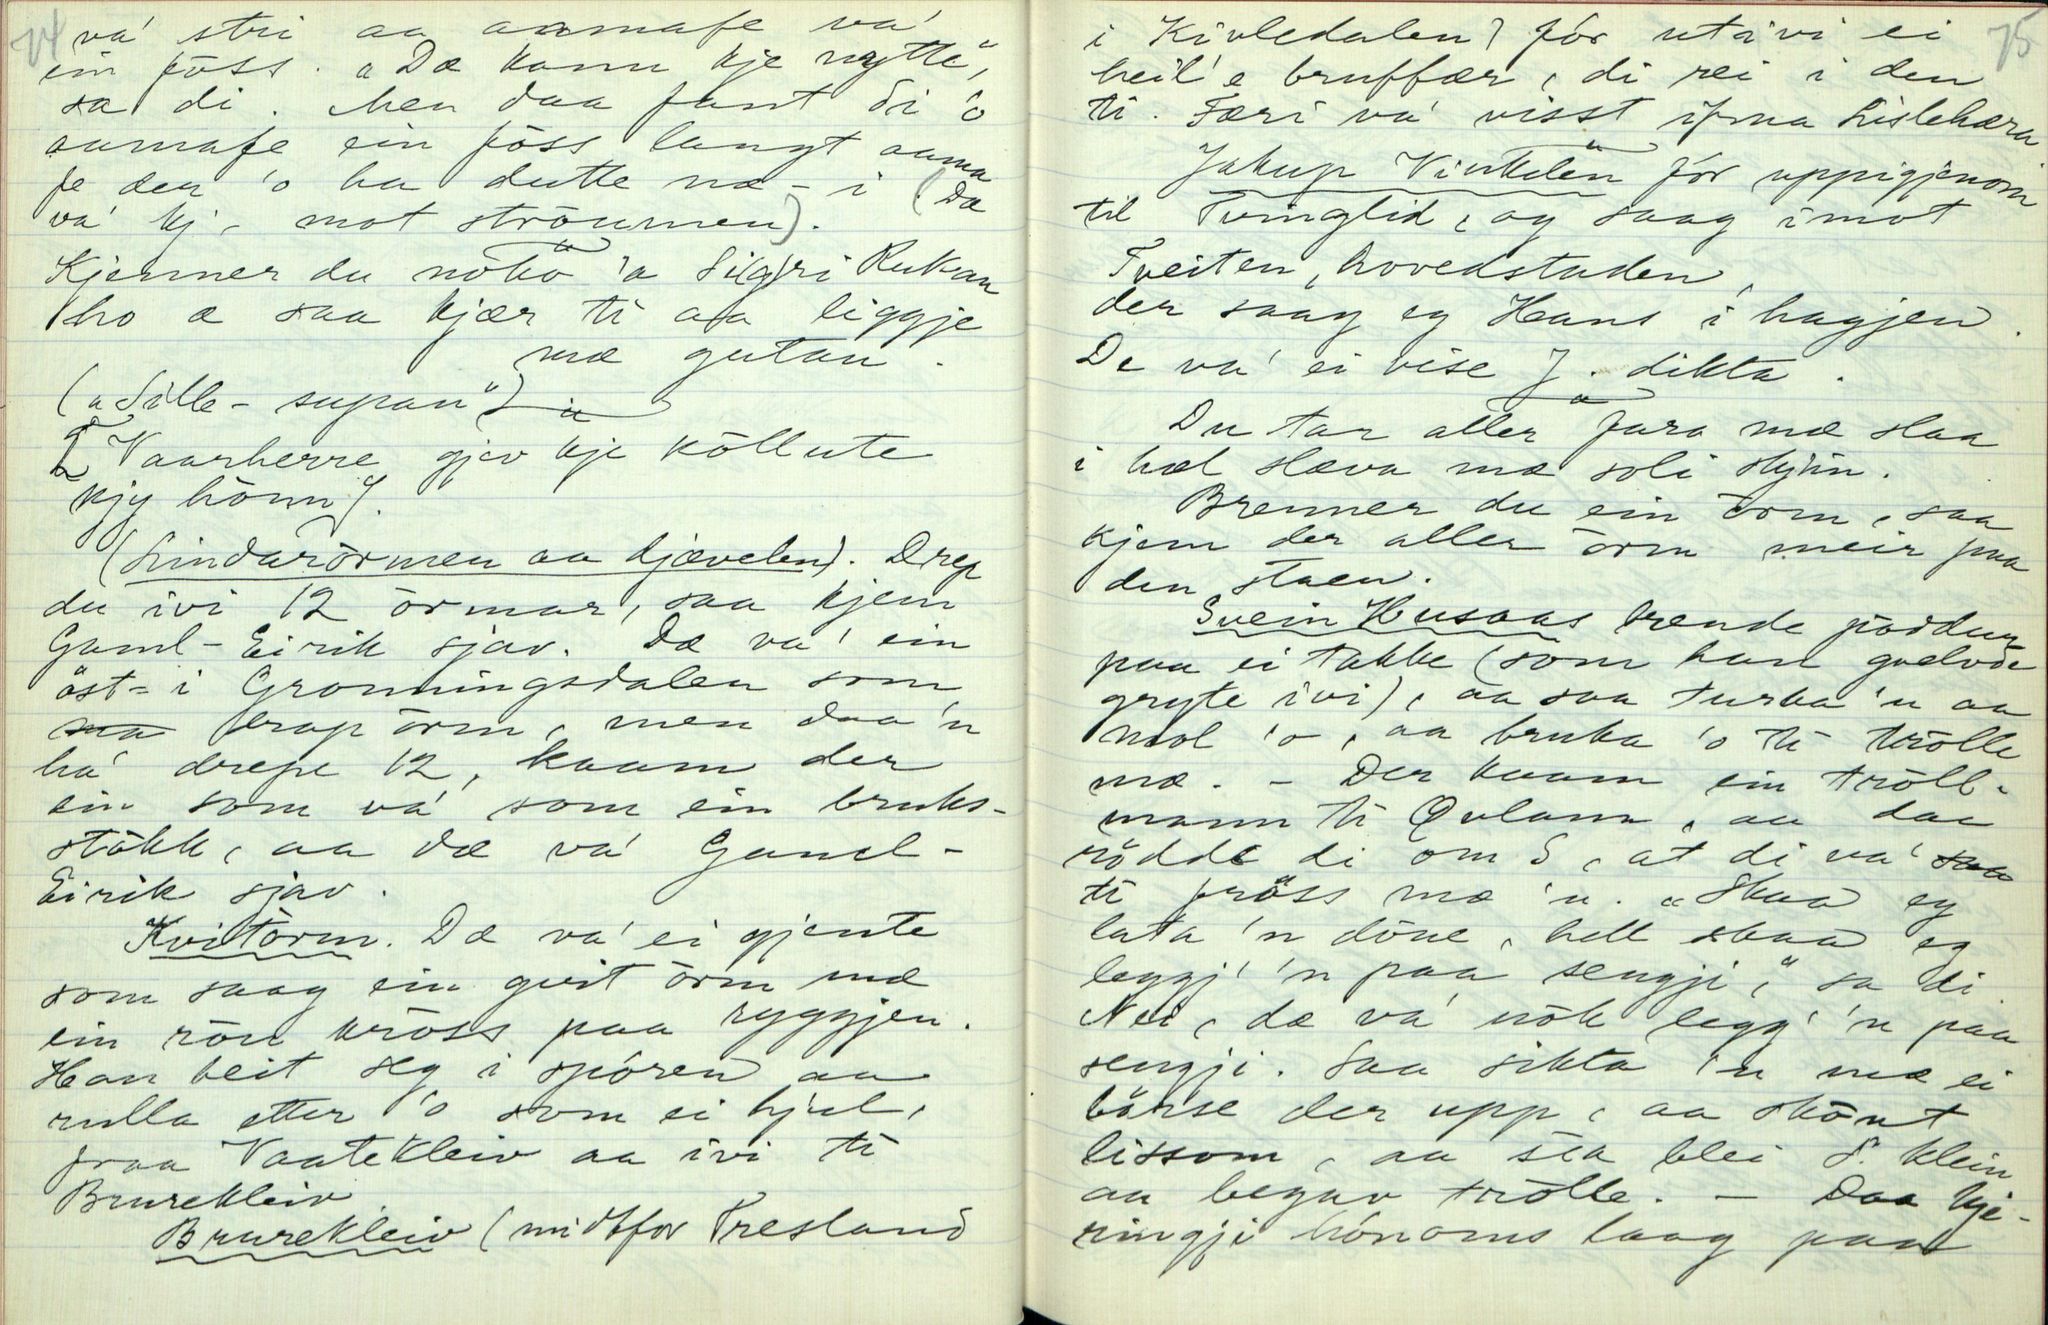 74
va' stri aa aamafe va'
ein föss. „Dæ kann kje nytte",
sa di. Men daa fant di 'o
aamafe ein föss langt aama
fe den 'o ha dutte næ - i (Dæ
va' kj, mot ströumen).
Kjenner du nökö 'a Si(g)ri Rukan
ho æ saa kjær ti aa liggje
mæ gutan.
(„Sille-supan")
[Vaarherre gjev kje köllute
kjy hönn].
(Lindarormen aa kjævelen). Drep
du ivi 12 ormar, saa kjem
Gaml-Eirik sjav. Dæ va' ein
öst-i Gronningsdalen som
drap orm, men daa 'n
ha' drepe 12, kaam der
ein som va' som ein bruks-
stökk, aa dæ va' Gamel-
Eirik sjav.
Kvitorm. Dæ va' ei gjente
som saag ein qvit orm mæ
ein röu kross paa ryggjen.
Han beit seg i spóren aa
rulla etter 'o som ei hjul,
fraa Vaatekleiv aa ivi ti
Brurekleiv.
Brurekleiv (midtfor Tresland
75
i Kivledalen) fór utivi ei
heil' e bruffær, di rei i den
ti. Færi va' visst ifraa Lislehæra
Jakup Vintilen fór uppigjenom
til Tvinglid, og saag imot
Tveiten, hovedstaden,
der saag eg Hans i hagjen.
De va' ei vise J. dikta.
Du tar aller fara mæ slaa
i hæl slæva mæ soli skjin.
Brenner du ein orm, saa
kjem der aller orm meir paa
den staen.
Svein Husaas brende poddur
paa ei takke (som han qvelvde
gryte ivi), aa saa turka 'n aa
mol 'o, aa bruka 'o ti trolle
mæ. - Der kaam ein tröll-
mann ti Qvlann, aa daa
rödde di om S, at di va'
ti pröss mæ 'n. „Skaa eg
lata 'n döue, hell skaa eg
leggj' 'n paa sengji," sa di.
Nei, dæ va' nók legg' 'n paa
sengji. Saa sikta 'n mæ ei
börse der upp, aa sköut
lissom, aa sea blei S. klein
aa begav trolle. - Daa kje-
ringji hónoms laag paa